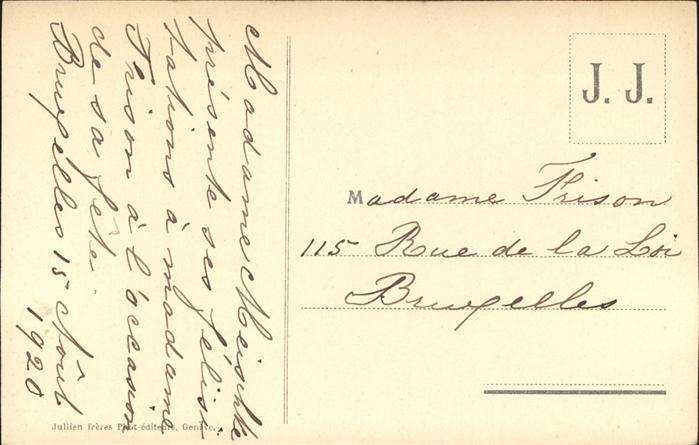 Madame Meischke
présente ses félici
tations à madame
Frison à l'occasion
de sa fête
Bruxelles 15 Août
1920
J. J.
Madame Frison
115 Rue de la Loi
Bruxelles
Jullien frères Phot-éditeurs, Genève.